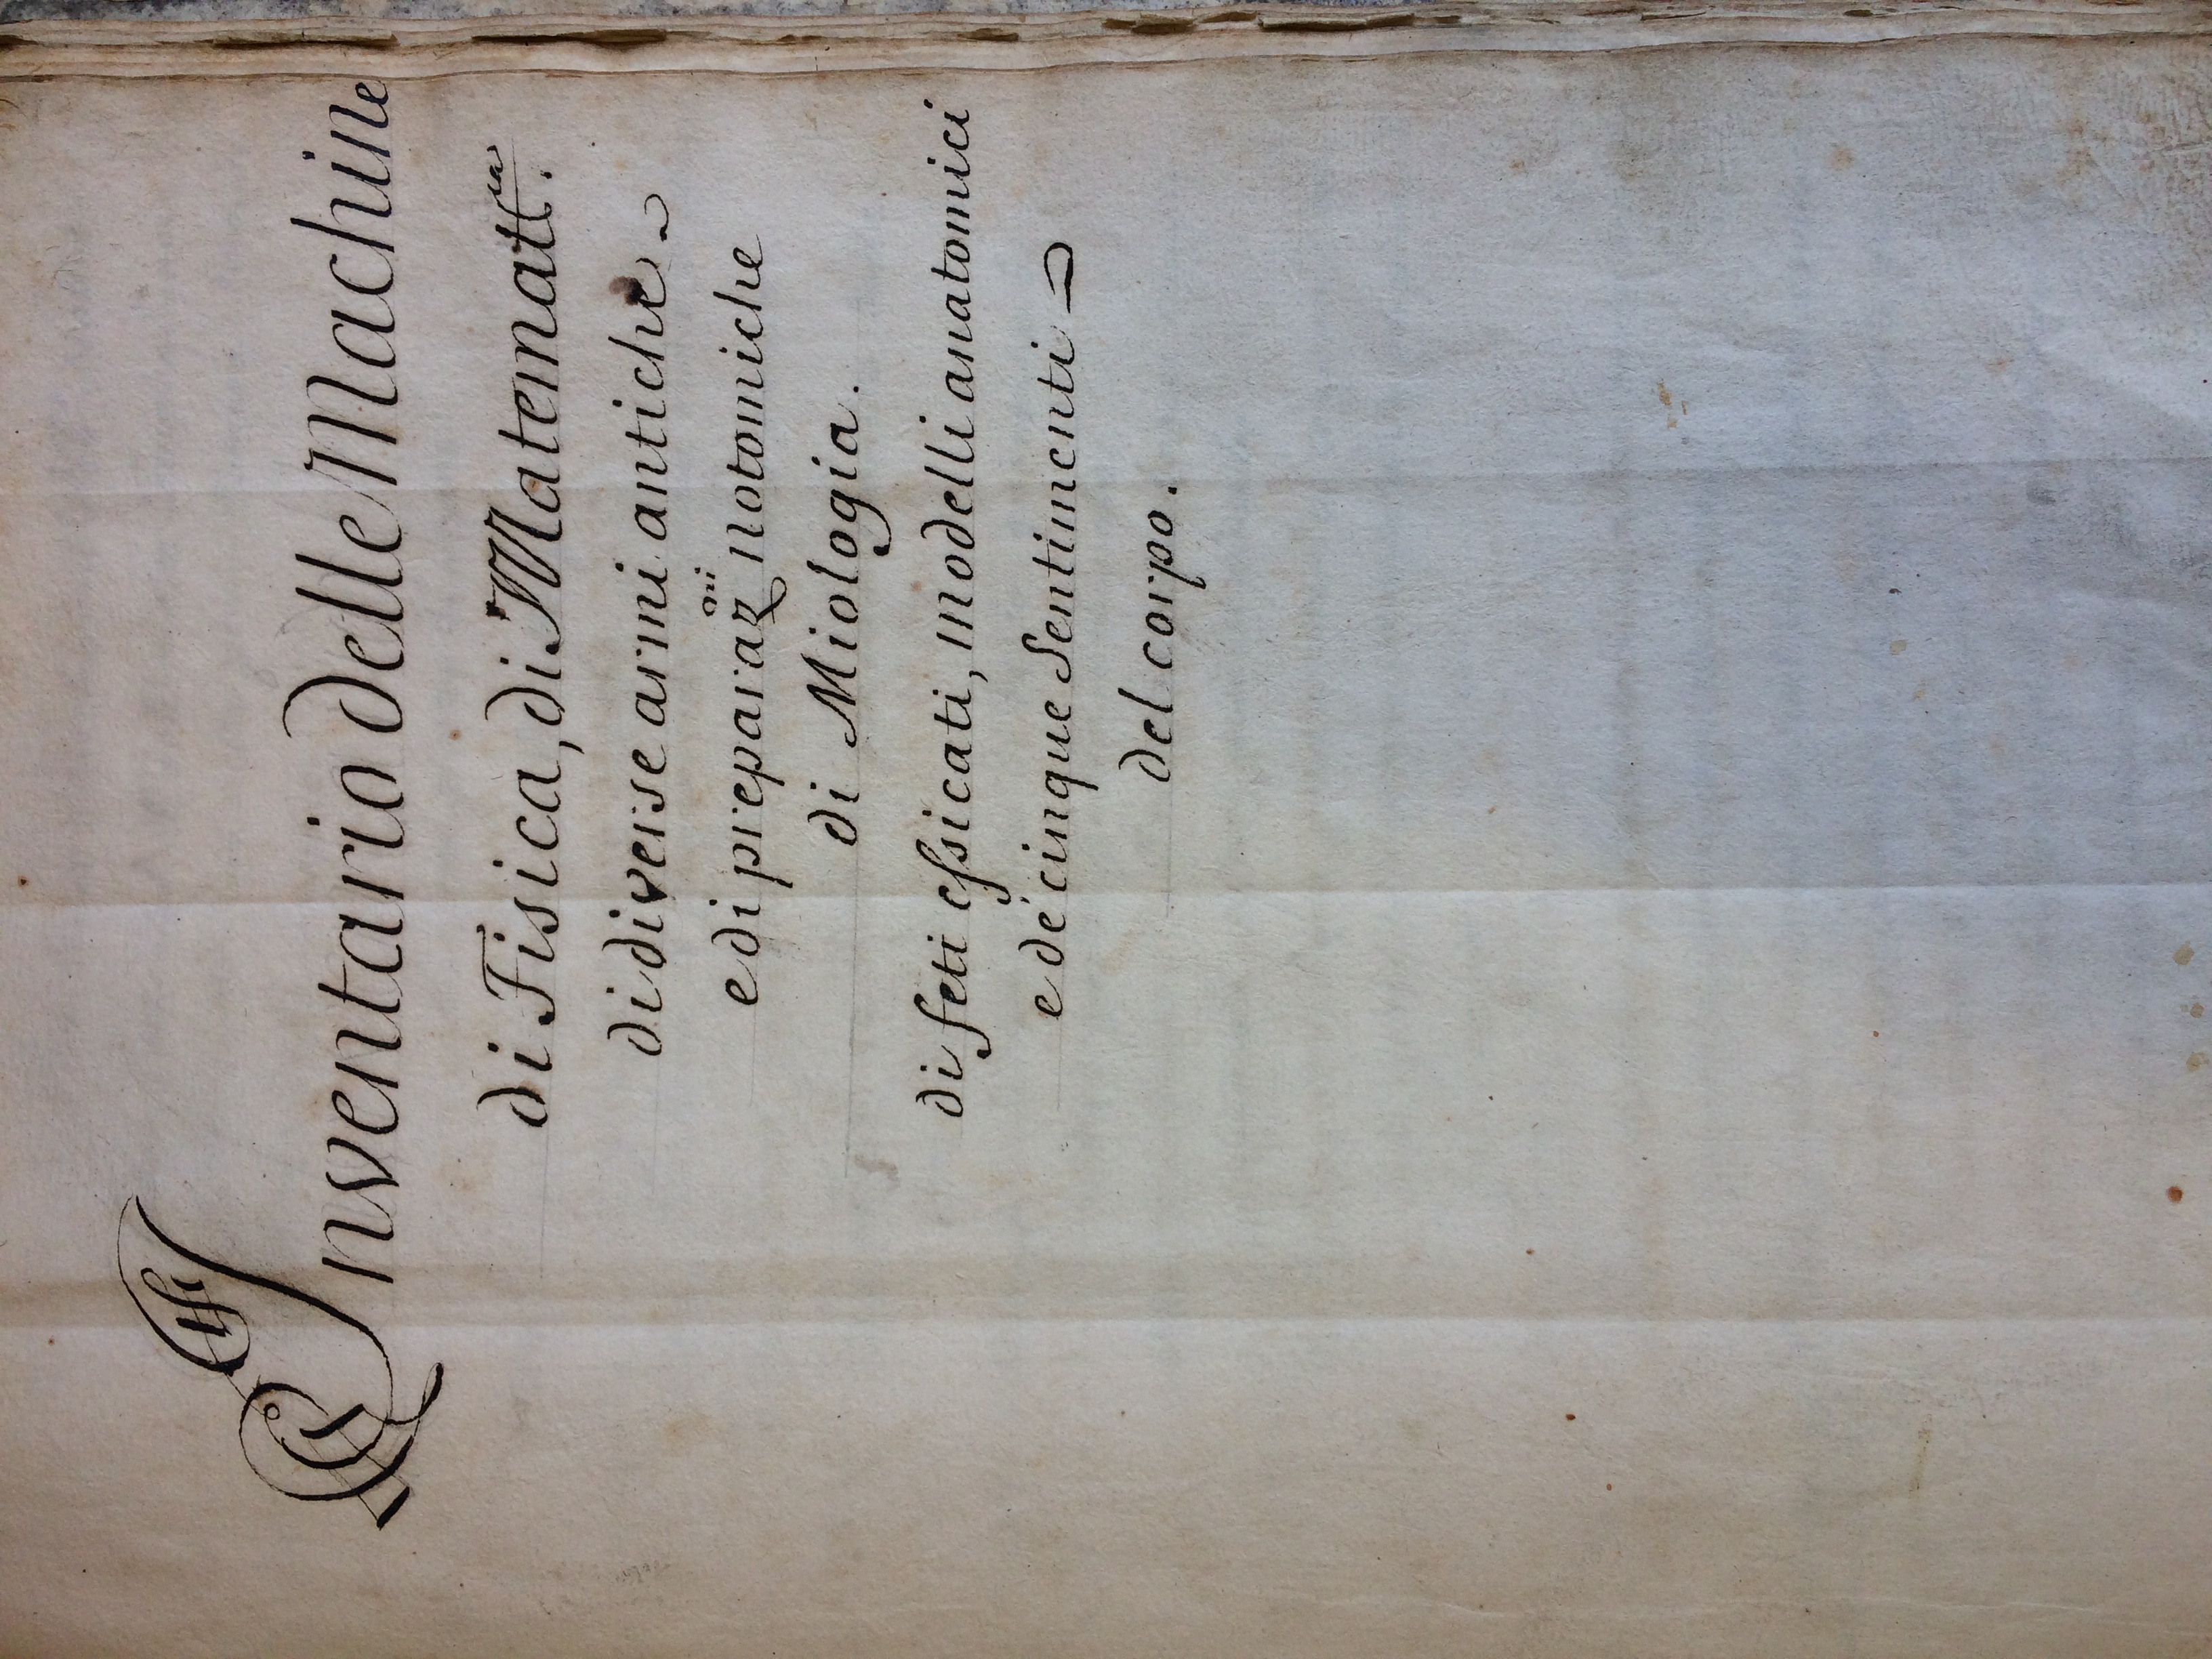 Inventario delle Machine
di Fisica, di Matemat.ca
di diverse armi antiche
e di preparazoni notomiche
di Miologia.
di feti eſsicati, modelli anatomici
e de' cinque Sentimenti
del corpo.